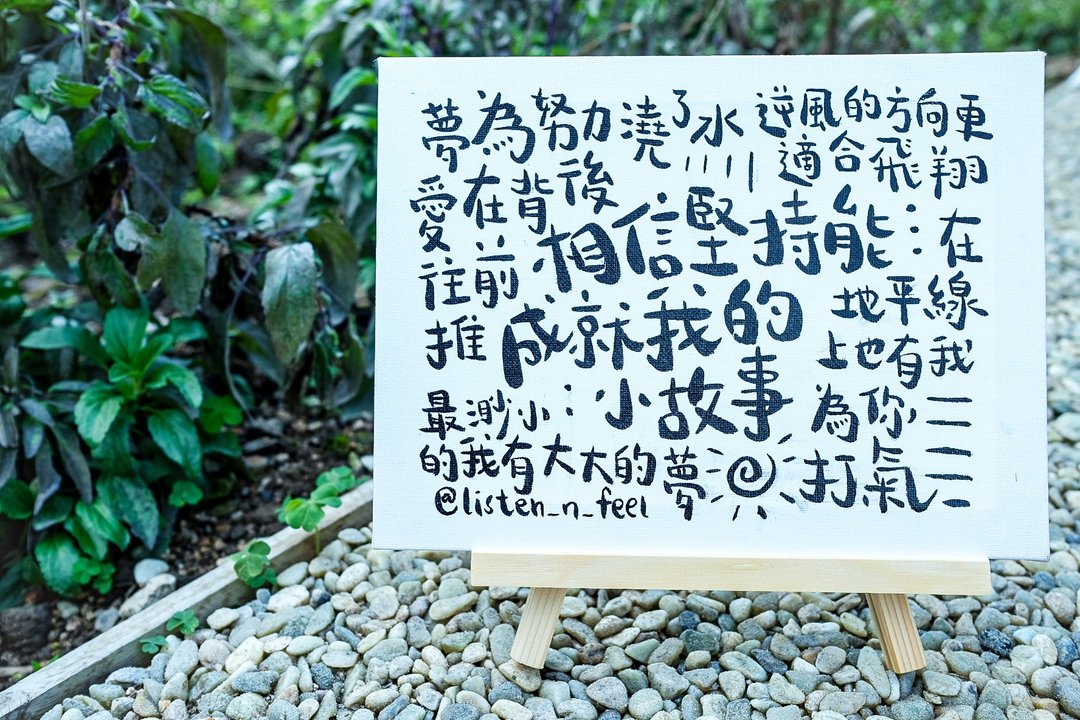 夢為努力澆了水
愛在背後
往前
推
逆風的方向更
適合飛翔
相信堅持能
成就我的
小故事
在
地平線
上也有我
為你
打氣
最渺小
的我有大大的夢
@listen_n_feel